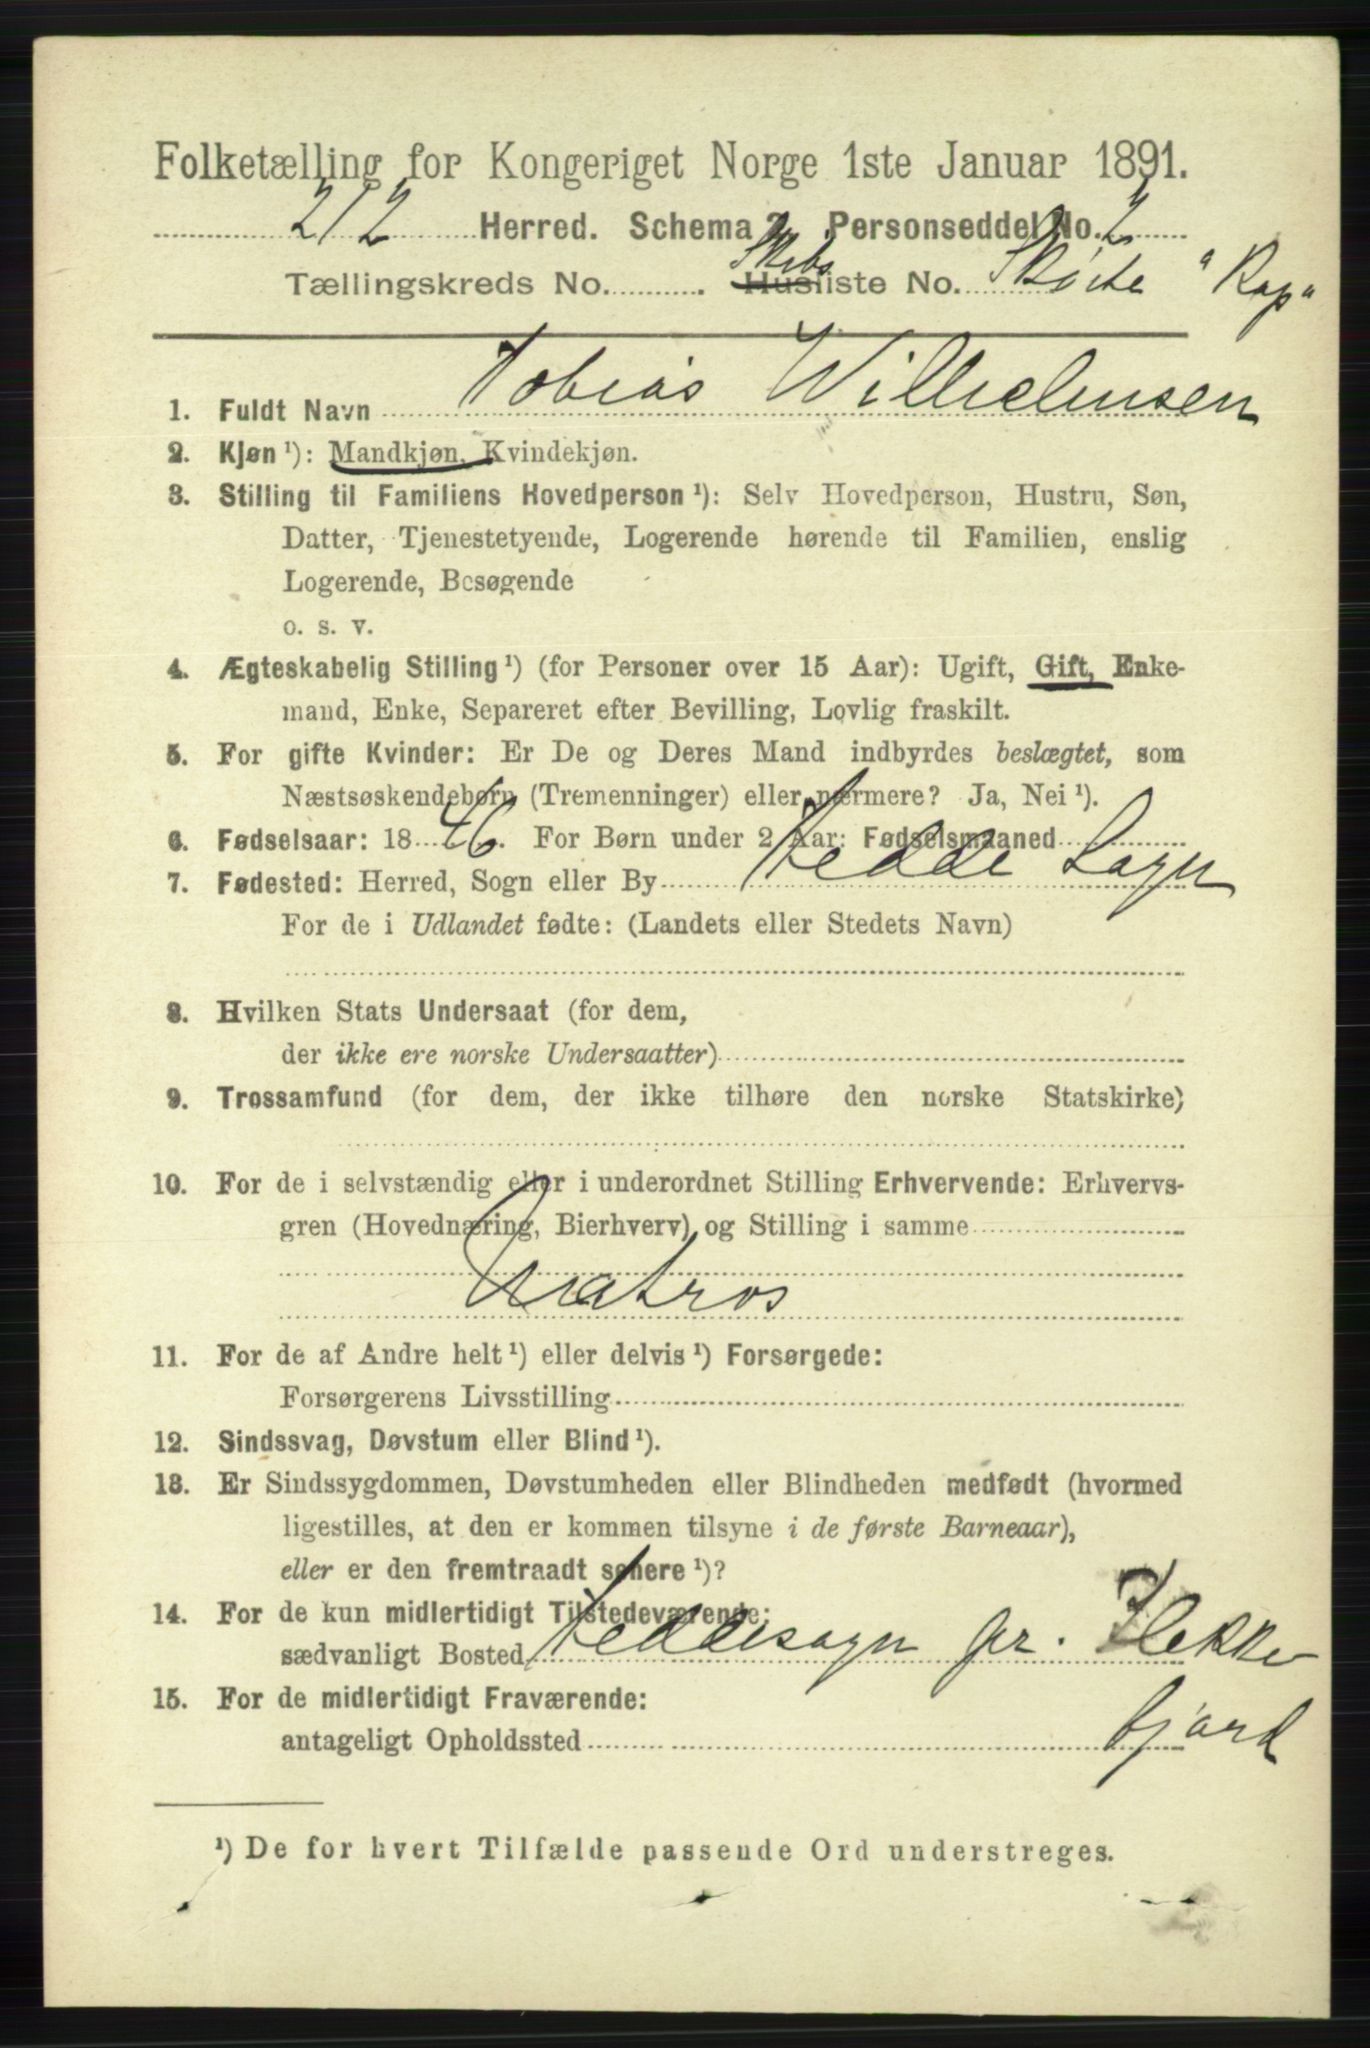 Folketælling for Kongeriget Norge 1ste Januar 1891.
212 Herred. Schema 2. Personseddel No. 2
Tællingskreds No. . Skibs Husliste No. Skøite "Rap"
1. Fuldt Navn Tobias Wilhelmsen
2. Kjøn ¹): Mandkjøn, Kvindekjøn.
3. Stilling til Familiens Hovedperson ¹): Selv Hovedperson, Hustru, Søn,
Datter, Tjenestetyende, Logerende hørende til Familien, enslig
Logerende, Besøgende
o. s. v.
4. Ægteskabelig Stilling ¹) (for Personer over 15 Aar): Ugift, Gift, Enke-
mand, Enke, Separeret efter Bevilling, Lovlig fraskilt.
5. For gifte Kvinder: Er De og Deres Mand indbyrdes beslægtet, som
Næstsøskendebørn (Tremenninger) eller nærmere? Ja, Nei ¹).
6. Fødselsaar: 18 46. For Børn under 2 Aar: Fødselsmaaned
7. Fødested: Herred, Sogn eller By Hedde Sogn
For de i Udlandet fødte: (Landets eller Stedets Navn)
8. Hvilken Stats Undersaat (for dem,
der ikke ere norske Undersaatter)
9. Trossamfund (for dem, der ikke tilhøre den norske Statskirke)
10. For de i selvstændig eller i underordnet Stilling Erhvervende: Erhvervs-
gren (Hovednæring, Bierhverv) og Stilling i samme
Matros
11. For de af Andre helt ¹) eller delvis ¹) Forsørgede:
Forsørgerens Livsstilling
12. Sindssvag, Døvstum eller Blind ¹).
13. Er Sindssygdommen, Døvstumheden eller Blindheden medfødt (hvormed
ligestilles, at den er kommen tilsyne i de første Barneaar),
eller er den fremtraadt senere ¹)?
14. For de kun midlertidigt Tilstedeværende:
sædvanligt Bosted Heddesogn pr. Flekke
fjord
15. For de midlertidigt Fraværende:
antageligt Opholdssted
¹) De for hvert Tilfælde passende Ord understreges.